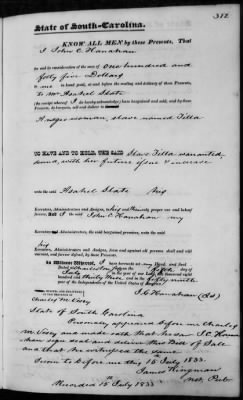 312
State of South-Carolina.
KNOW ALL MEN by these Presents, That
I John C. Hanahan
for and in consideration of the sum of One hundred and
forty five Dollars
to me in hand paid, at and before the sealing and delivery of these Presents,
To Mr Asahel State
(the receipt whereof I do hereby acknowledge) have bargained and sold, and by these
Presents, do bargain, sell and deliver to
A negro woman, slave named Tilla
TO HAVE AND TO HOLD, THE SAID Slave Tilla warranted
sound, with her future issue & increase
unto the said Asahel State his
Executors, Administrators and Assigns, to his and
forever. And I the said John C. Hanahan my
Executors, Administrators, the said bargained premises, unto the said
his
Executors, Administrators and Assigns, from and against all persons shall and will
warrant, and forever defend, by these Presents.
In Witness Whereof, I have hereunto set my Hand and Seal
Dated
on the
day of
July in the year of our Lord one thousand eight
hundred and thirty three and in the fifty ninth
year of the Independence of the United States of America.
J. C. Hanahan (LS)
IN THE PRESENCE OF
Charles M
State of South Carolina
Personally appeared before me Charles
and made oath that he saw J. C. Hanahan
sign seal and deliver this Bill of Sale
and that he witnessed the same
Sworn to before me this 15 July 1833.
James Kingman
Not. Pub.
Recorded 15 July 1833